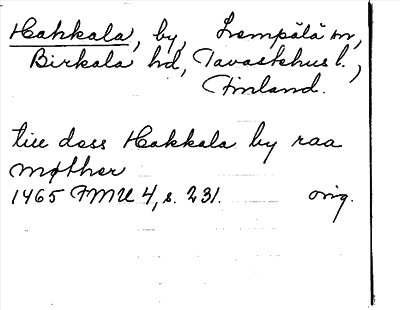 Hakkala, by, Lempälä sn,
Birkala hd, Tavastehus l.,
Finland.
till dess Hakkala by raa
møther
1465 FMU 4, s. 231. orig.